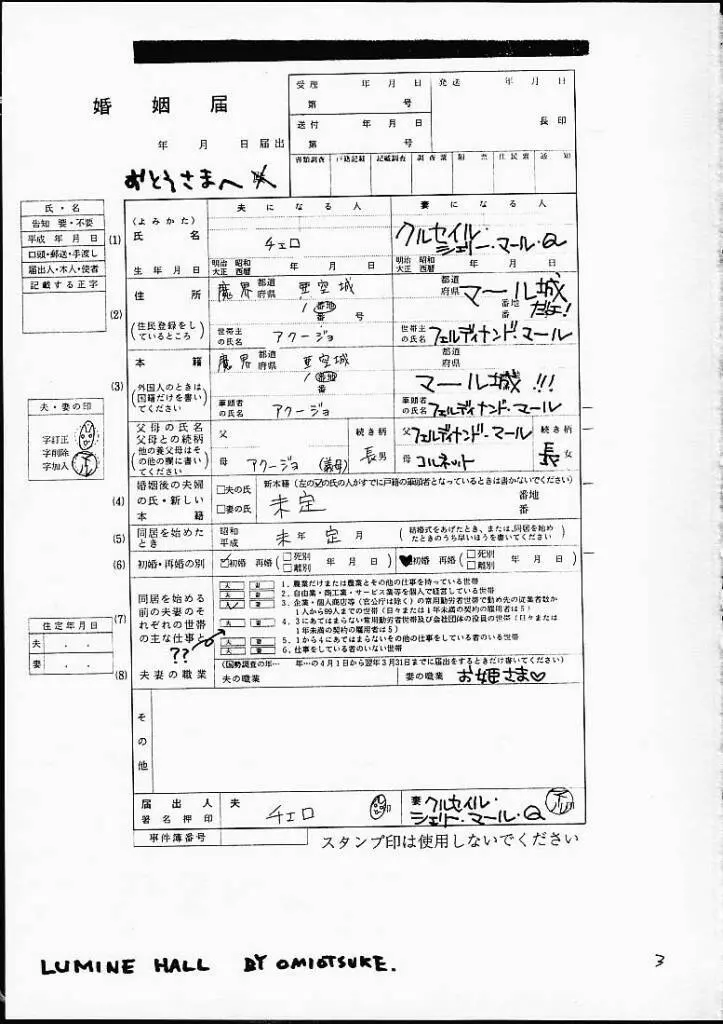 婚姻届
年 月 日 届出
おとうさまへ
受理 年 月 日
第 号
発送 年 月 日
送付 年 月 日
第 号
長印
書類調査 戸籍記載 記載調査 調査票 附票 住民票 通知
氏・名
告知 要・不要
平成 年 月 日
口頭・郵送・手渡し
届出人・本人・使者
記載する正字
夫になる人 妻になる人
(1)
(よみかた)
氏名
チェロ
クルセイル・
シェリー・マール・Q
生年月日
明治 昭和
大正 西暦
年 月 日
明治 昭和
大正 西暦
年 月 日
(2)
住所
魔界 都道府県 亜空城
1 番地
番 号
都道府県 マール城
番地
番 号
だよ!
(住民登録をしているところ)
世帯主の氏名 アクージョ
世帯主の氏名 フェルディナンド・マール
(3)
本籍
魔界 都道府県 亜空城
1 番地
番
都道府県
マール城!!!
(外国人のときは国籍だけを書いてください)
筆頭者の氏名 アクージョ
筆頭者の氏名 フェルディナンド・マール
夫・妻の印
字訂正
字削除
字加入
父母の氏名
父母との続柄
(他の養父母はその他の欄に書いてください)
父 続き柄
母 アクージョ (義母) 長男
父 フェルディナンド・マール 続き柄
母 コルネット 長女
(4)
婚姻後の夫婦の氏・新しい本籍
□夫の氏
□妻の氏
新本籍(左の☑の氏の人がすでに戸籍の筆頭者となっているときは書かないでください)
未定
番地
番
(5)
同居を始めたとき
昭和
平成 未年 定月
(結婚式をあげたとき、または、同居を始めたときのうち早いほうを書いてください)
(6)
初婚・再婚の別
☑初婚 再婚 (□死別 □離別 年 月 日)
♥初婚 再婚 (□死別 □離別 年 月 日)
(7)
同居を始める前の夫妻のそれぞれの世帯の主な仕事と
??
夫 妻 1. 農業だけまたは農業とその他の仕事を持っている世帯
夫 妻 2. 自由業・商工業・サービス業等を個人で経営している世帯
夫 妻 3. 企業・個人商店等(官公庁は除く)の常用勤労者世帯で勤め先の従業者数が1人から99人までの世帯(日々または1年未満の契約の雇用者は5)
夫 妻 4. 3にあてはまらない常用勤労者世帯及び会社団体の役員の世帯(日々または1年未満の契約の雇用者は5)
夫 妻 5. 1から4にあてはまらないその他の仕事をしている者のいる世帯
夫 妻 6. 仕事をしている者のいない世帯
住定年月日
夫 . .
妻 . .
(8)
夫妻の職業
(国勢調査の年… 年…の4月1日から翌年3月31日までに届出をするときだけ書いてください)
夫の職業
妻の職業 お姫さま♡
その他
届出人
署名押印
夫 チェロ 印
妻 クルセイル・
シェリー・マール・Q 印
事件簿番号
スタンプ印は使用しないでください
LUMINE HALL BY OMIOTSUKE.
3